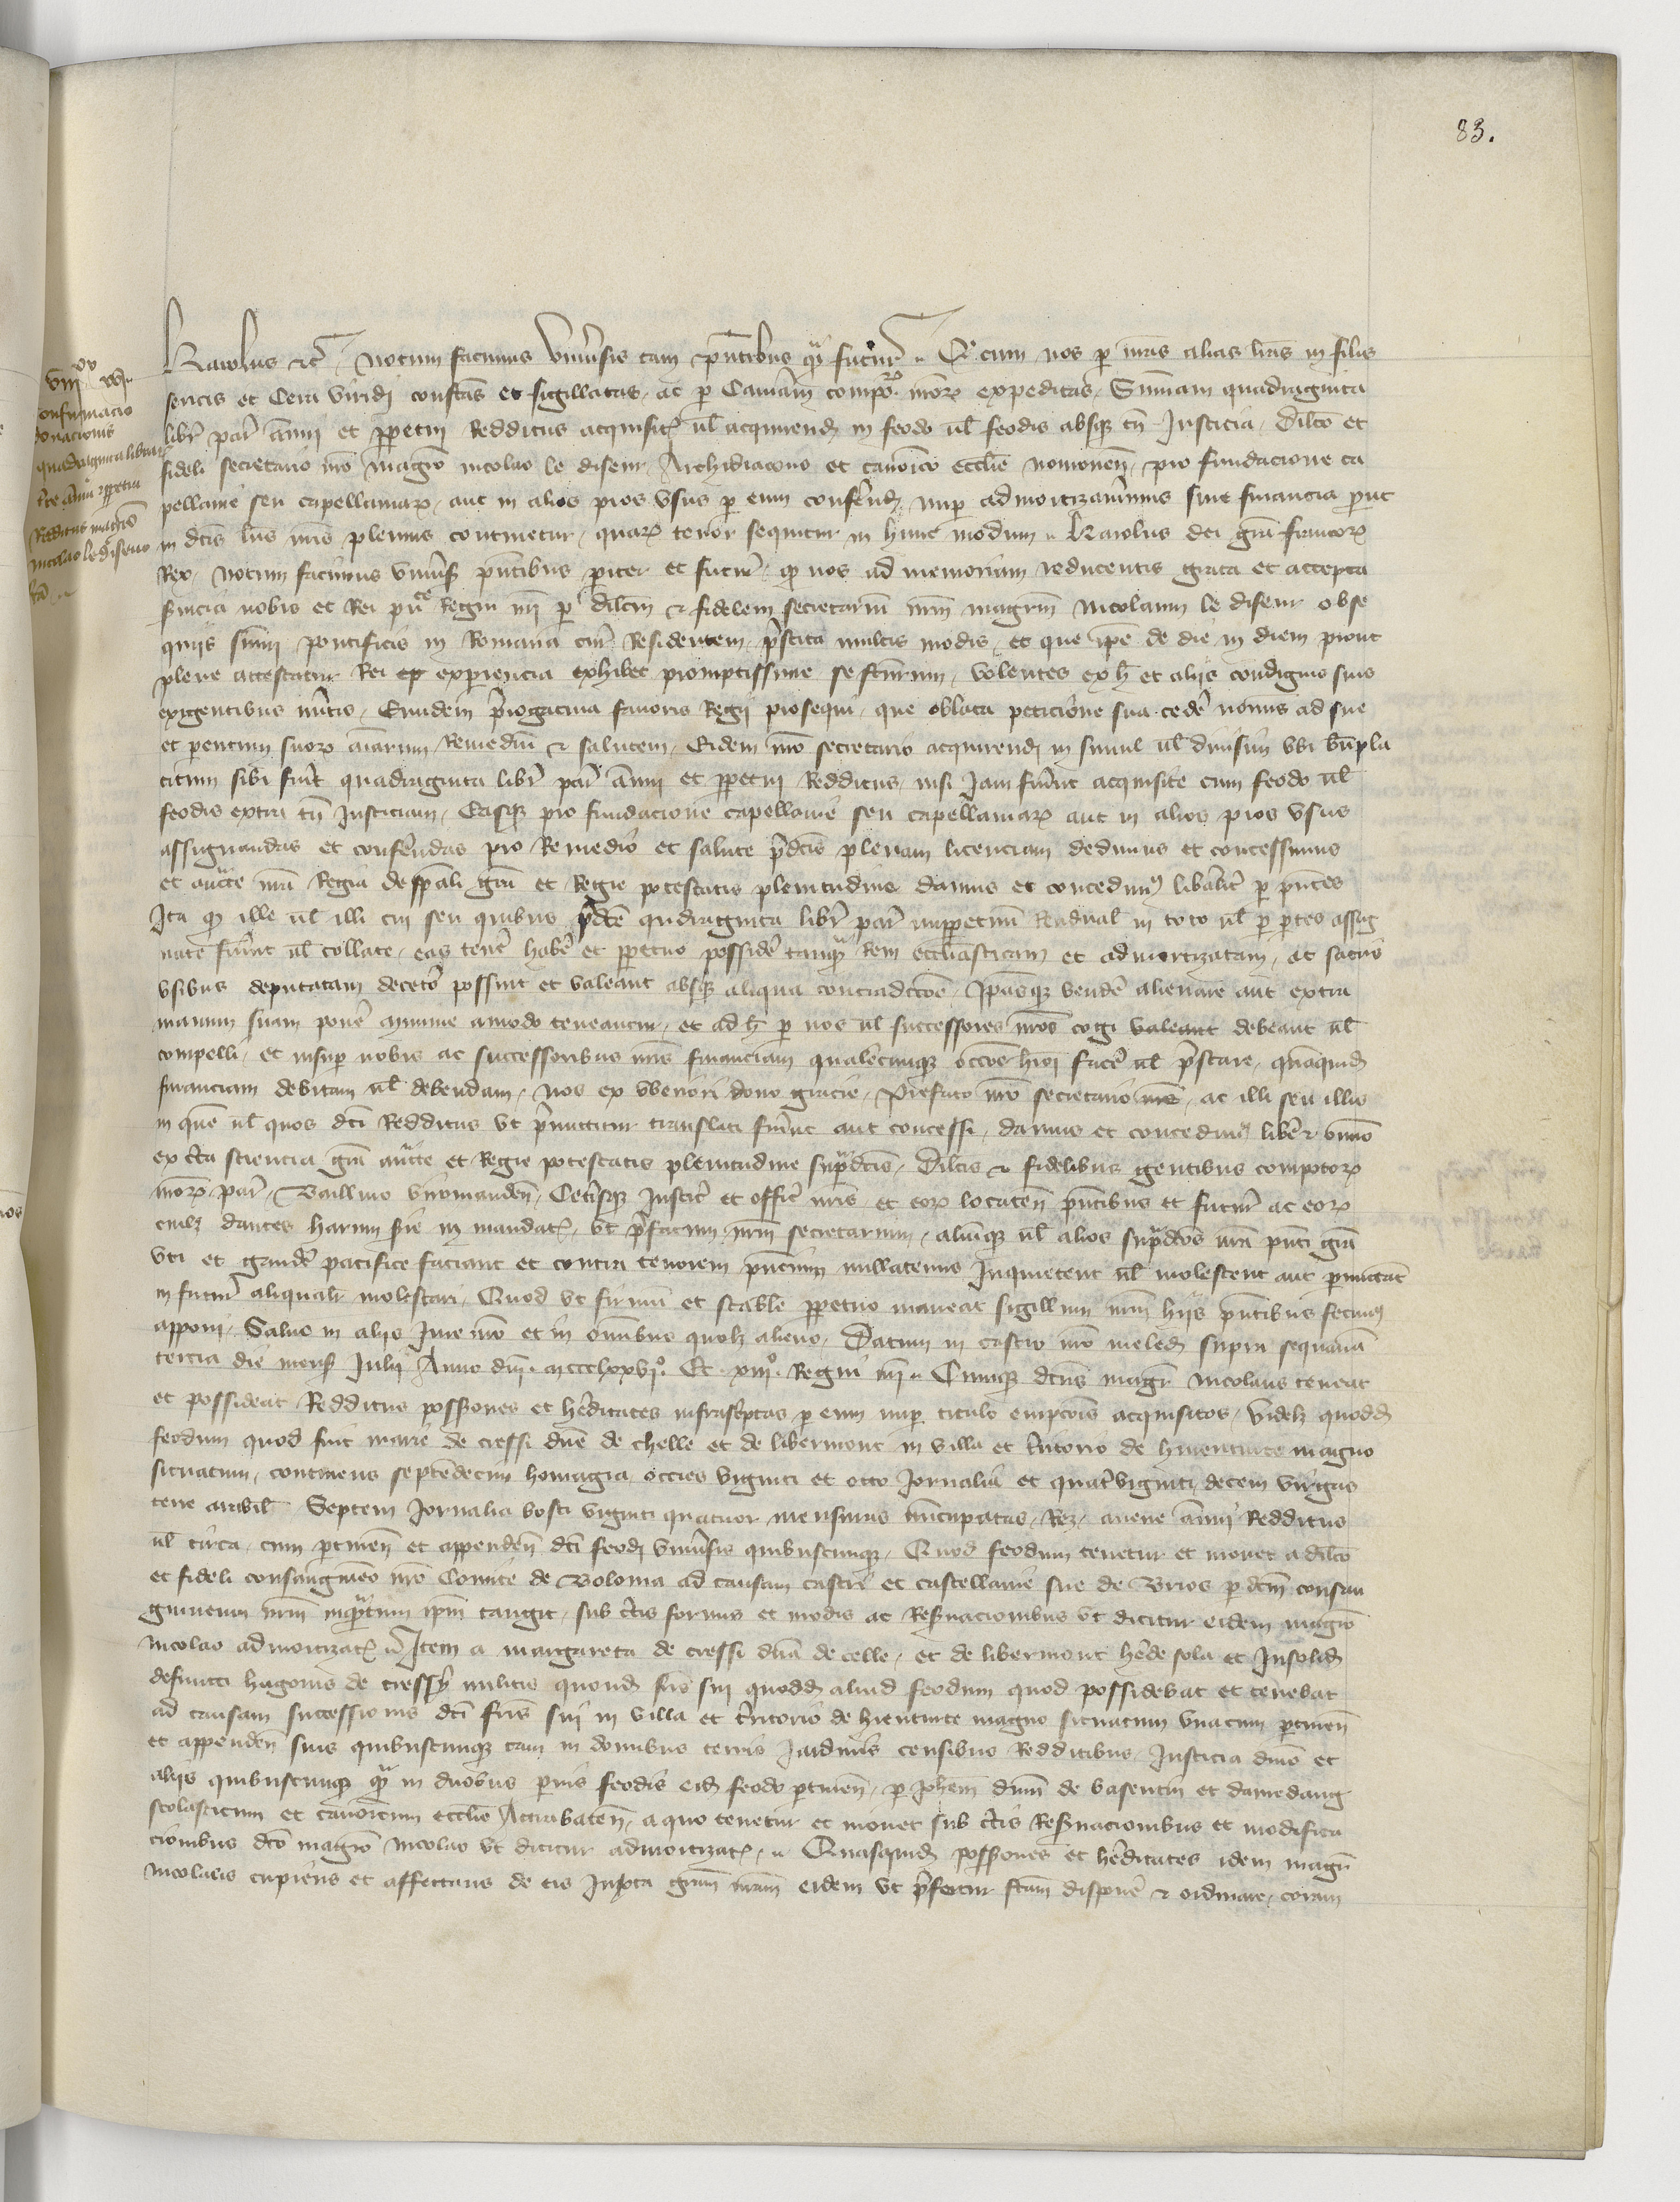 83.
viii xx xvi
confirmacio
donacionis
quadraginta librar
terre annui et perpetui
Redditus magistro
nicolao le diseur
fca
Karolus etc Notum facimus vniuersis tam presentibus quam futuris Quod cum nos per nostras alias litteras in filis
sericis et Cera viridi confectas et sigillatas, ac per Cameram compotorum nostrorum expeditas, Summam quadraginta
libr par annui et perpetui Redditus acquisit vel acquirend in feodo vel feodis absque tamen Justicia, Dilecto et
fideli secretario nostro magistro nicolao le diseur, Archidiacono et canonico ecclesie nouionen, pro fundacione ca
pellanie seu capellaniarum, aut in alios pios vsus per eum conferend, nuper admortizauerimus sine financia prout
in dictis litteris nostris plenius continetur, quarum tenor sequitur in hunc modum Karolus dei gratia francorum
Rex, Notum facimus vniuersis presentibus pariter et futuris, quod nos ad memoriam reducentes grata et accepta
seruicia nobis et Rei publice Regni nostri per dilectum et fidelem secretarium nostrum magistrum Nicolaum le diseur obse
quiis summi pontificis in Romana curia Residentem, prestita multis modis, et que ipse de die in diem prout
plene attestatur Rei experiencia exhibet promptissime se facturum, volentes ex hoc et aliis condignis suis
exigentibus meritis, Eundem prerogatiua fauoris Regii prosequi, que oblata peticione sua cedere nouimus ad sue
et parentum suorum animarum Remedium et salutem, Eidem nostro secretario acquirendi in simul vel diuisim vbi benepla
citum sibi fuerit quadraginta libr par annui et perpetui Redditus, nisi Jam fuerint acquisite cum feodo vel
feodis extra tamen Justiciam, Easque pro fundacione capellanie seu capellaniarum aut in alios pios vsus
assignandas et conferendas pro Remedio et salute predictis plenam licenciam dedimus et concessimus
et auctoritate nostra Regia de speciali gratia et Regie potestatis plenitudine damus et concedimus liberaliter per presentes
Ita quod ille vel illi cui seu quibus predicte quadraginta libr par imperpetuum Reddual in toto vel per partes assig
nate fuerint vel collate, eas tenere habere et perpetuo possidere tanquam Rem ecclesiasticam et admortizatam, ac sacris
vsibus deputatam de cetero possint et valeant absque aliqua contradictione, Ipsasque vendere alienare aut extra
manum suam ponere minime amodo teneantur, et ad hoc per nos vel successores nostros cogi valeant debeant vel
compelli, et insuper nobis ac successoribus nostris financiam qualemcunque occasione huiusmodi facere vel prestare, quamquidem
financiam debitam vel debendam, Nos ex vberiori dono gracie, Prefato nostro secretario, ac illi seu illis
in quem vel quos dicti Redditus vt premittitur translati fuerint aut concessi, damus et concedimus libere
ex certa sciencia gratia auctoritate et Regie potestatis plenitudine supradictis, Dilectis et fidelibus gentibus compotorum
nostrorum par, Baillivo viromanden, Ceterisque Justic et offic nostris et eorum locaten presentibus et futuris ac eorum
cuilibet dantes harum serie in mandatis, vt prefatum nostrum secretarium, aliumque vel alios supradictos nostra presenti gratia
vti et gaudere pacifice faciant et contra tenorem presencium nullatenus Inquietent vel molestent aut permittant
in futurum aliqualiter molestari, Quod vt firmum et stabile perpetuo maneat sigillum nostrum hiis presentibus fecimus
apponi, Saluo in aliis Jure nostro et in omnibus quolibet alieno, Datum in castro nostro meled supra sequanam
tercia die mensis Julii Anno domini mccclxxvi° Et xiii° Regni nostri Cumque dictus magister Nicolaus teneat
et possideat Redditus possessiones et hereditates infrascriptas per eum nuper titulo empcionis acquisitos, videlicet quoddam
feodum quod fuit marie de cressi domine de chelle et de libermont in villa et territorio de hyencourte magno
situatum, continens septemdecim homagia, octies viginti et octo Jornalia et quatervigintidecem virgas
terre arabil, Septem Jornalia bosci viginti quatuor mensuras nuncupatas, Rez, auene annui Redditus
vel circa, cum pertinen et appenden dicti feodi vniuersis quibuscunque, Quod feodum tenetur et mouet a dilecto
et fideli consanguineo nostro Comite de Bolonia ad causam castri et castellanie sue de Brios per dictum consan
guineum nostrum inquantum ipsum tangit, sub certis formis et modis ac Reseruacionibus vt dicitur eidem magistro
Nicolao admortizat Item a margareta de cressi domina de celle, et de libermont herede sola et Insolidum
defuncti hugonis de cressy militis quondam fratris sui quoddam aliud feodum quod possidebat et tenebat
ad causam successionis dicti fratris sui in villa et territorio de hiencurte magno situatum vnacum pertinen
et appenden suis quibuscunque tam in domibus terris Jardinis censibus Redditibus, Justicia dominio et
aliis quibuscunque quam in duobus paruis feodis eidem feodo pertinen, per Johannem dominum de basentin et damedaug
scolasticum et canonicum ecclesie Attrabaten, a quo tenetur et mouet sub certis Reseruacionibus et modifica
cionibus dicto magistro Nicolao vt dicitur admortizat, Quasquidem possessiones et hereditates idem magister
Nicolaus cupiens et affectans de eis Juxta gratiam nostram eidem vt prefertur factam disponere et ordinare, coram